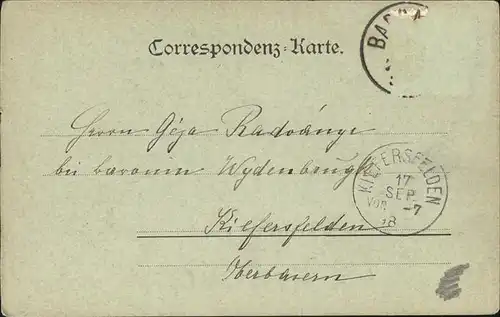 Correspondenz-Karte.
BAD
Herrn Géza Radványi
bei baronin Wydenbrugk
Kiefersfelden
Oberbayern
KIEFERSFELDEN
17
SEP.
VOR. -7
98